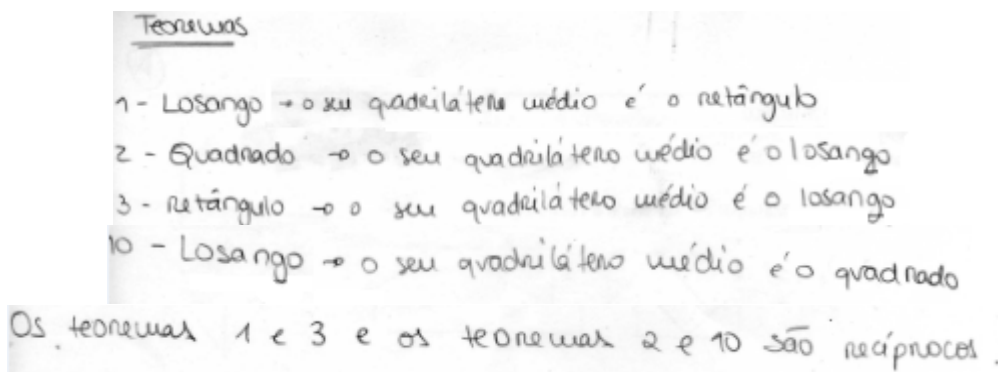 Teoremas
1 - Losango → o seu quadrilátero médio é o retângulo
2 - Quadrado → o seu quadrilátero médio é o losango
3 - retângulo → o seu quadrilátero médio é o losango
10 - Losango → o seu quadrilátero médio é o quadrado
Os teoremas 1 e 3 e os teoremas 2 e 10 são recíprocos.